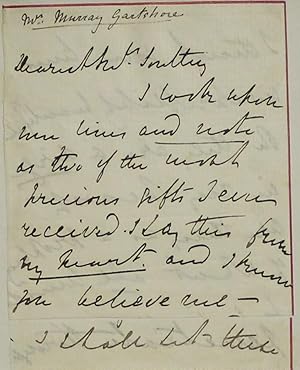 Mrs. Murray Gartshore
Dearest Mrs. Southey
I look upon
lines and note
as two of the most
precious gifts I ever
received. I say this from
my heart. and I know
you believe me –
I shall let these